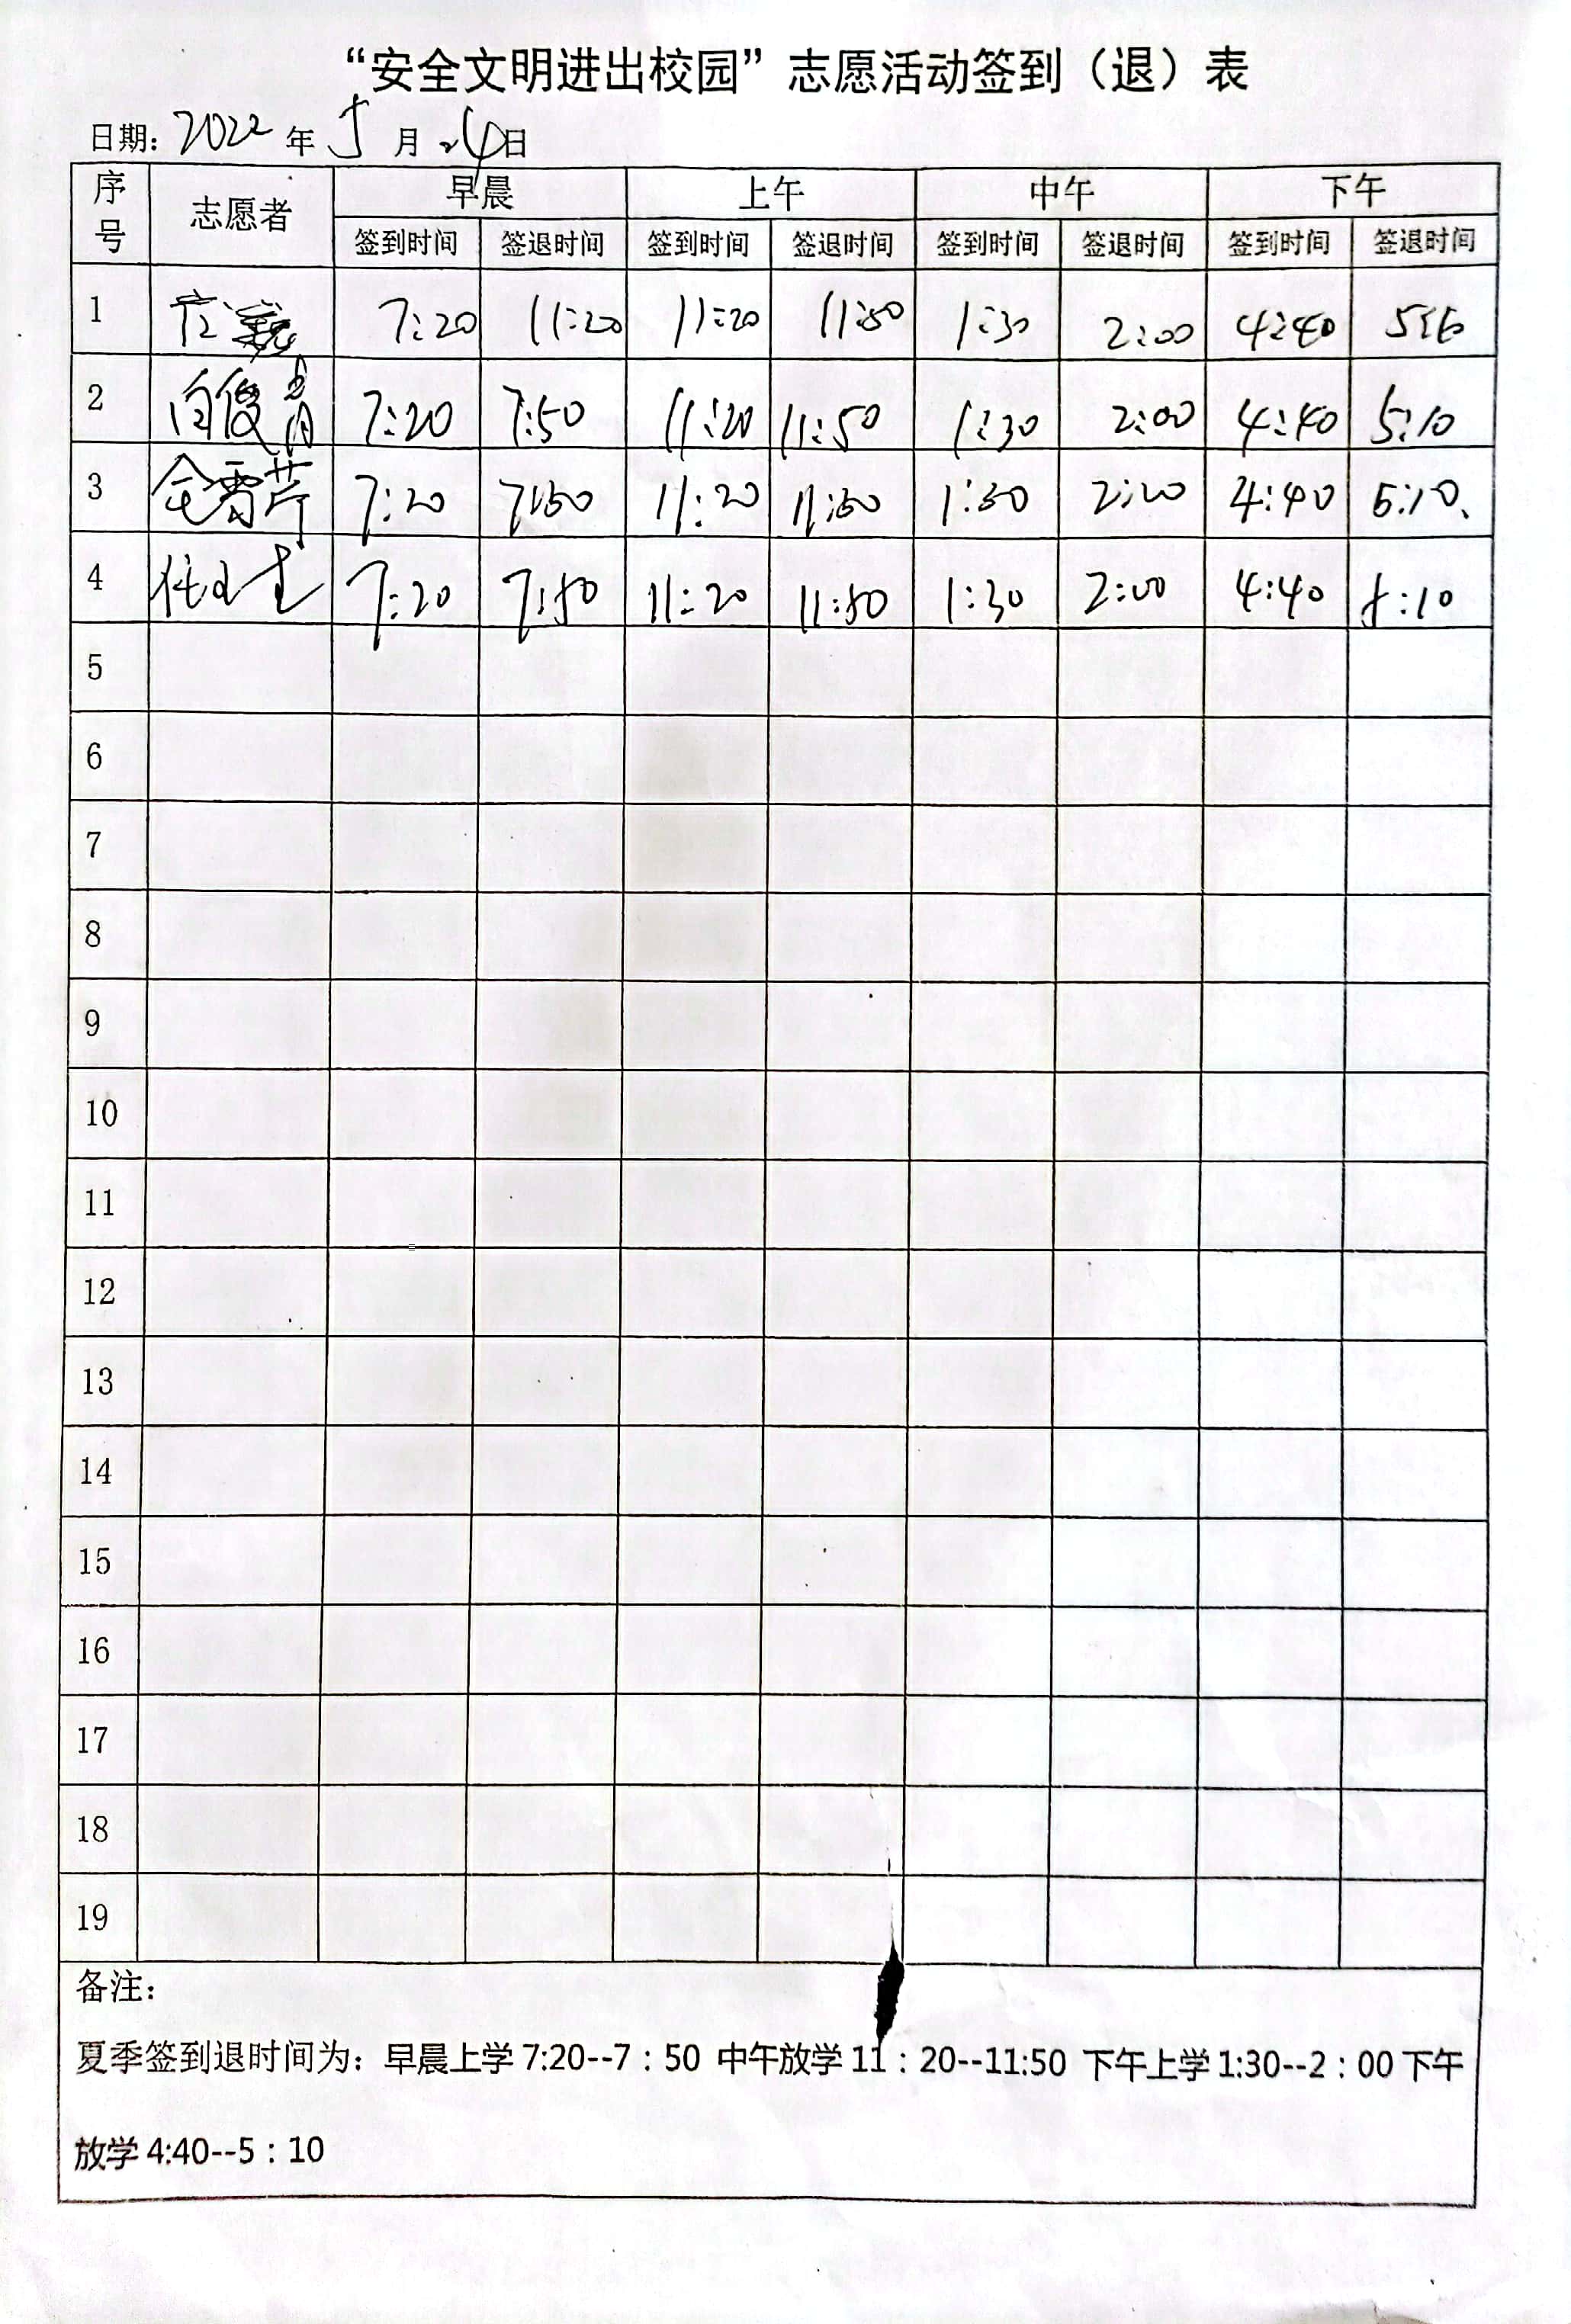 “安全文明进出校园”志愿活动签到（退）表
日期：2022年5月24日
序号 志愿者 早晨 上午 中午 下午
签到时间 签退时间 签到时间 签退时间 签到时间 签退时间 签到时间 签退时间
1 7:20 11:20 11:20 11:50 1:30 2:00 4:40
2 白俊青 7:20 7:50 11:20 11:50 1:30 2:00 4:40 5:10
3 仝雪芹 7:20 7:50 11:20 11:50 1:30 2:00 4:40 5:10、
4 7:20 7:50 11:20 11:50 1:30 2:00 4:40 5:10
5
6
7
8
9
10
11
12
13
14
15
16
17
18
19
备注：
夏季签到退时间为：早晨上学7:20--7：50 中午放学11：20--11:50 下午上学1:30--2：00下午
放学4:40--5：10